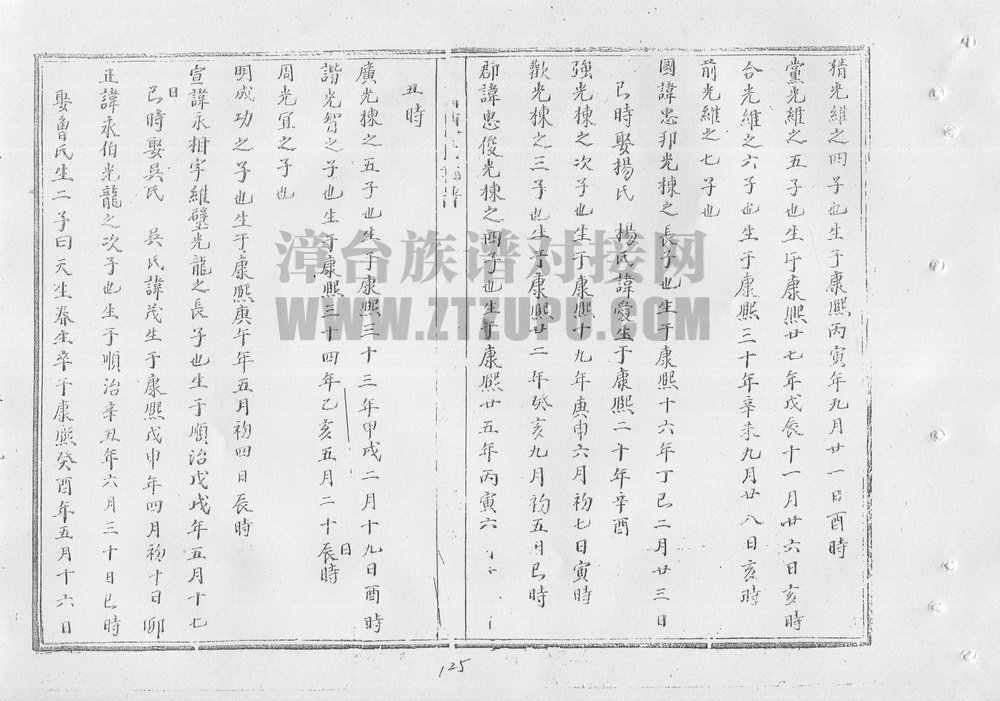 猜光維之四子也生于康熙丙寅年九月廿一日酉時
黨光維之五子也生于康熙廿七年戊辰十一月廿六日亥時
合光維之六子也生于康熙三十年辛未九月廿八日亥時
前光維之七子也
國諱忠邦光棟之長子也生于康熙十六年丁巳二月廿三日
巳時娶揚氏 揚氏諱愛生于康熙二十年辛酉
強光棟之次子也生于康熙十九年庚申六月初七日寅時
歡光棟之三子也生于康熙廿二年癸亥九月初五日巳時
郡諱忠俊光棟之四子也生于康熙廿五年丙寅六
丑時
廣光棟之五子也生于康熙三十三年甲戌二月十九日酉時
諧光智之子也生于康熙三十四年乙亥五月二十日辰時
周光宜之子也
明成功之子也生于康熙庚午年五月初四日辰時
宣諱承相字維璧光龍之長子也生于順治戊戌年五月十七
日巳時娶吳氏 吳氏諱茂生于康熙戊申年四月初十日卯
正諱承伯光龍之次子也生于順治辛丑年六月三十日巳時
娶魯氏生二子曰天生眷生卒于康熙癸酉年五月十六日
125
漳台族谱对接网
WWW.ZTZUPU.COM